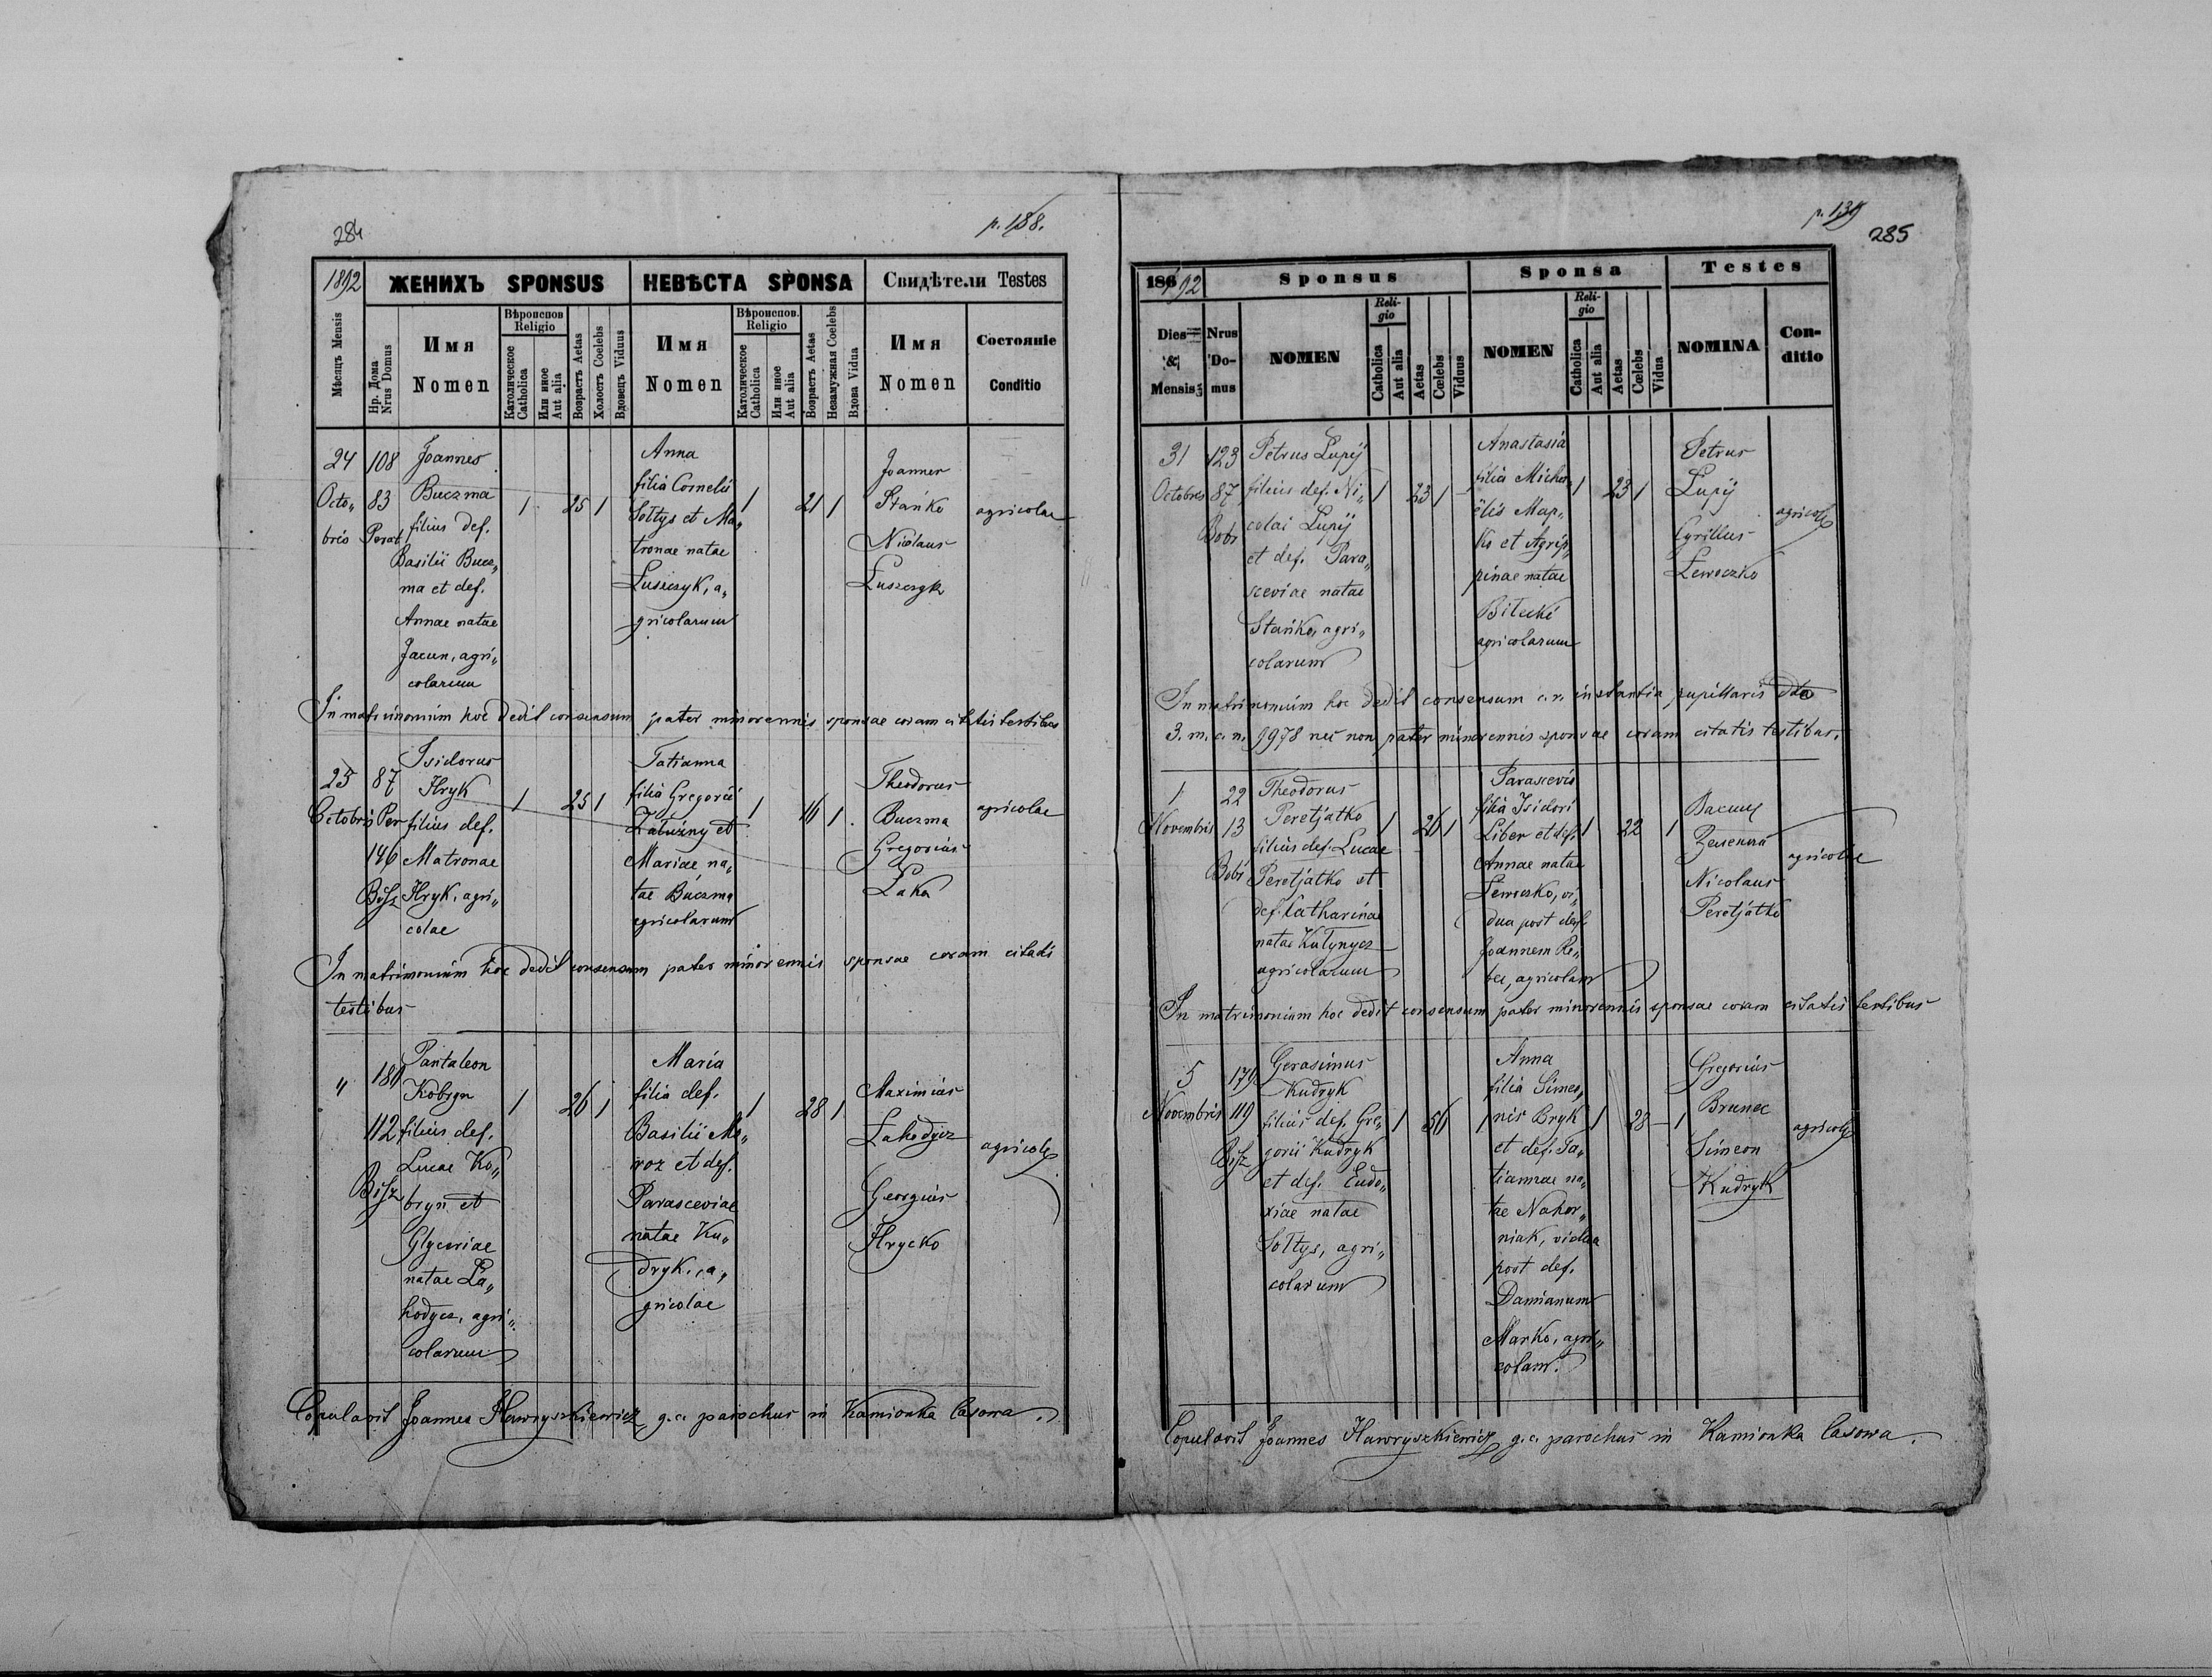 284
p. 188.
1892
ЖЕНИХЪ SPONSUS
НЕВѢСТА SPONSA
Свидѣтели Testes
Мѣсяцъ Mensis
Нр. Дома
Nrus Domus
Имя
Nomen
Вѣроиспов
Religio
Католическое
Catholica
Или иное
Aut alia
Возрастъ Aetas
Холостъ Coelebs
Вдовецъ Viduus
Имя
Nomen
Вѣроиспов.
Religio
Католическое
Catholica
Или иное
Aut alia
Возрастъ Aetas
Незамужная Coelebs
Вдова Vidua
Имя
Nomen
Состояніе
Conditio
24
Octo„
bris
108
83
Perat
Joannes
Buczma
filius def.
Basilii Bucz„
ma et def.
Annae natae
Jacun, agri„
colarum
1 25 1
Anna
filia Cornelii
Sołtys et Ma„
tronae natae
Łuszczyk, a„
gricolarum
1 21 1
Joannes
Stańko
Nicolaus
Łuszczyk
agricolae
In matrimonium hoc dedit consensum pater minorennis sponsae coram citatis testibus
25
Octobris
87
Per
146
Bisz
Isidorus
Hryk
filius def.
Matronae
Hryk, agri„
colae
1 25 1
Tatianna
filia Gregorii
Załużny et
Mariae na„
tae Buczma
agricolarum
1 16 1
Theodorus
Buczma
Gregorius
Łaka
agricolae
In matrimonium hoc dedit consensum pater minorennis sponsae coram citatis
testibus
"
180
112
Bisz
Pantaleon
Kobryn
filius def.
Lucae Ko„
bryn et
Glyceriae
natae La„
hodycz, agri„
colarum
1 26 1
Maria
filia def.
Basilii Mo„
roz et def.
Parasceviae
natae Ku„
dryk, a„
gricolae
1 28 1
Maximus
Lahodycz
Georgius
Hrycko
agricole
Copulavit Joannes Hawryszkiewicz g. c. parochus in Kamionka Lasowa.
p. 139
285
186 92
Sponsus
Sponsa
Testes
Dies
&
Mensis
Nrus
Do-
mus
NOMEN
Reli-
gio
Catholica
Aut alia
Aetas
Cœlebs
Viduus
NOMEN
Reli-
gio
Catholica
Aut alia
Aetas
Cœlebs
Vidua
NOMINA
Con-
ditio
31
Octobris
123
87
Bobr
Petrus Łupij
filius def. Ni„
colai Łupij
et def. Para„
sceviae natae
Stańko, agri„
colarum
1 23 1
Anastasia
filia Micha„
ëlis Map„
ko et Agrip„
pinae natae
Biłecki
agricolarum
1 23 1
Petrus
Łupij
Cyrillus
Lewoczko
agricole
In matrimonium hoc dedit consensum c. r. instantia pupillaris dto
3. m. c. n. 9978 nec non pater minorennis sponsae coram citatis testibus.
1
Novembris
22
13
Bobr
Theodorus
Peretjatko
filius def. Lucae
Peretjatko et
def. Catharinae
natae Kułynycz
agricolarum
1 26 1
Parascevia
filia Isidori
Liber et def.
Annae natae
Lewoczko, vi„
dua post def.
Joannem Re„
bec, agricolam
1 22 1
Nicolaus
Peretjatko
agricolae
In matrimonium hoc dedit consensum pater minorennis sponsae coram citatis testibus
5
Novembris
179
119
Bisz
Gerasimus
Kudryk
filius def. Gre„
gorii Kudryk
et def. Eudo„
xiae natae
Sołtys, agri„
colarum
1 56 1
Anna
filia Simeo„
nis Bryk
et def. Ta„
tiannae na„
tae Nahor„
niak, vidua
post def.
Damianum
Marko, agri„
colam.
1 28 1
Gregorius
Brunec
Simeon
Kudryk
agricole
Copulavit Joannes Hawryszkiewicz g. c. parochus in Kamionka Lasowa.